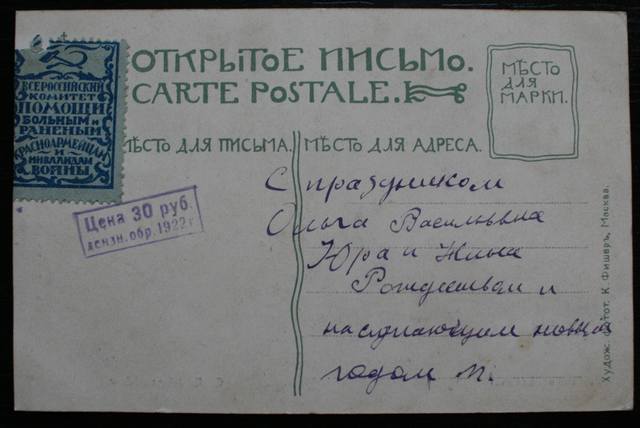 ОТКРЫТОЕ ПИСЬМО.
CARTE POSTALE.
МѢСТО
ДЛЯ
МАРКИ.
ВСЕРОССИЙСКИЙ
КОМИТЕТ
ПОМОЩИ
БОЛЬНЫМ И
РАНЕНЫМ
КРАСНОАРМЕЙЦАМ
И
ИНВАЛИДАМ
ВОЙНЫ
МѢСТО ДЛЯ ПИСЬМА.
МѢСТО ДЛЯ АДРЕСА.
Цена 30 руб.
обр. 1922 г.
С праздником
Ольга Васильевна
Юра и Нина
Рождеством и
наступающим новым
годом М.
Худож. К. Фишеръ, Москва.